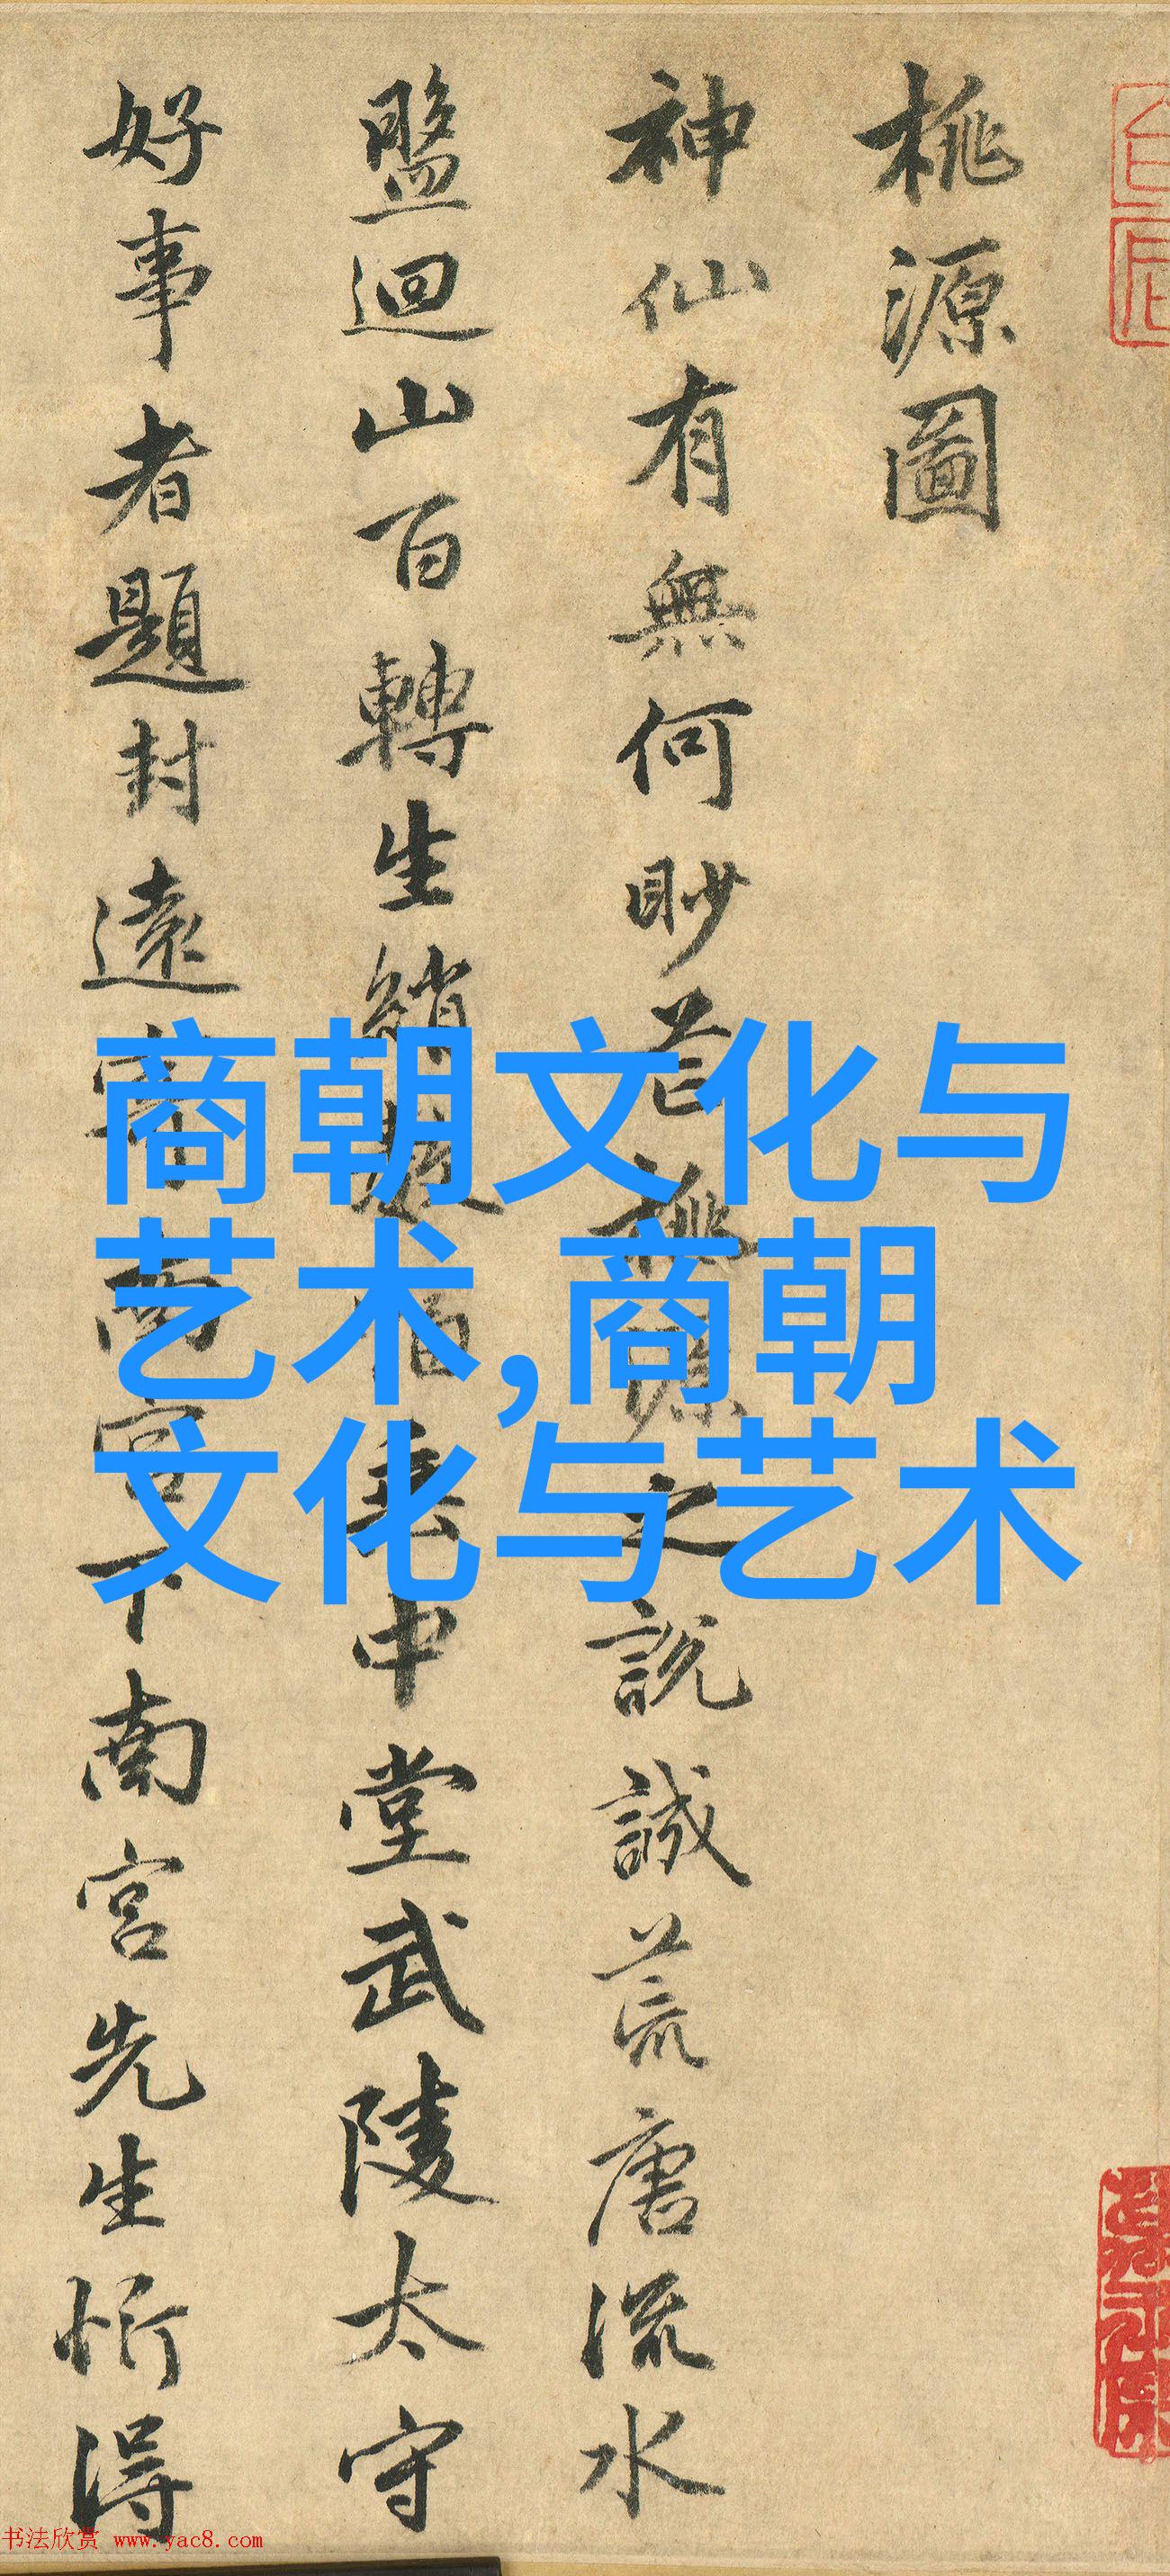 桃源圖
神仙有無何眇芒桃源之說誠荒唐流水
盤迴山百轉生綃數幅垂中堂武陵太守
好事者題封遠寄南宮下南宮先生忻得
商朝文化与
艺术,商朝
文化与艺术
书法欣赏 www.yac8.com